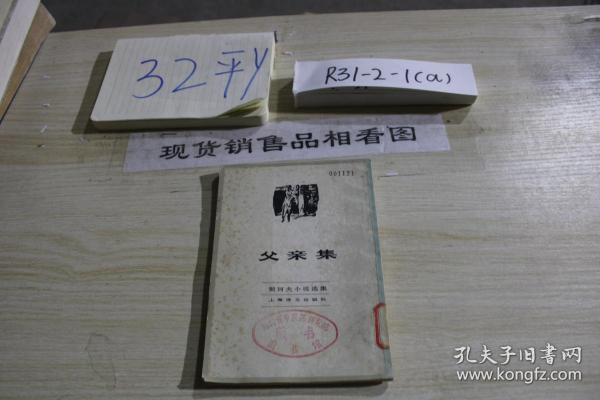 32平y
R31-2-1(a)
现货销售品相看图
001121
父亲集
契诃夫小说选集
上海译文出版社
孔夫子旧书网
www.kongfz.com